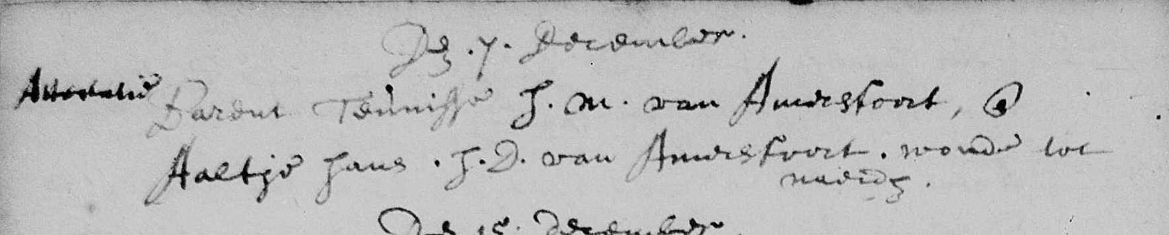 Den .7. December.
Attestatie
Barent Teunisse J. m. van Amersfoort, &
Aaltje Jans . J. D. van Amersfoort . wonde tot
Den 15. December.